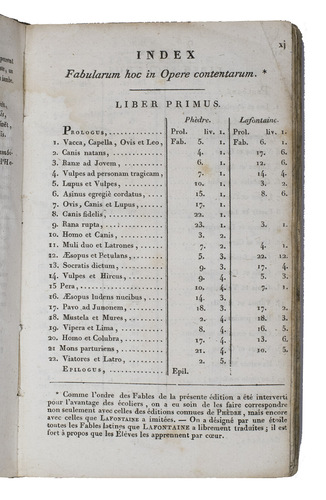 xj
INDEX
Fabularum hoc in Opere contentarum. *
LIBER PRIMUS.
Phèdre. Lafontaine.
PROLOGUS,........... Prol. liv. 1. Prol. liv. 1.
1. Vacca, Capella, Ovis et Leo, Fab. 5. 1. Fab. 6. 1.
2. Canis natans,........... 4. 1. 17. 6.
3. Ranæ ad Jovem,......... 6. 1. 12. 6.
4. Vulpes ad personam tragicam, 7. 1. 14. 4.
5. Lupus et Vulpes,........ 10. 1. 3. 2.
6. Asinus egregiè cordatus,... 15. 1. 8. 6.
7. Ovis, Canis et Lupus,..... 17. 1.
8. Canis fidelis,........... 22. 1.
9. Rana rupta,............ 23. 1. 3. 1.
10. Homo et Canis,......... 3. 2.
11. Muli duo et Latrones,..... 7. 2. 4. 1.
22. Æsopus et Petulans,...... 5. 3. 22. 12.
13. Socratis dictum,........ 9. 3. 17. 4.
14. Vulpes et Hircus,....... 9. 4. 5. 3.
15 Pera,............... 10. 4. 7. 1.
16. Æsopus ludens nucibus,.... 14. 3.
17. Pavo ad Junonem,....... 18. 3. 17. 2.
28. Mustela et Mures,....... 2. 4. 18. 3.
19. Vipera et Lima,........ 8. 4. 16. 5.
20. Homo et Colubra,....... 17. 4. 13. 6.
21 Mons parturiens,........ 21. 4. 10. 5.
22. Viatores et Latro,....... 2. 5.
EPILOGUS,........... Epil.
* Comme l'ordre des Fables de la présente édition a été interverti
pour l'avantage des écoliers, on a eu soin de les faire correspondre
non seulement avec celles des éditions communes de PHÈDRE, mais encore
avec celles que LAFONTAINE a imitées. — On a désigné par une étoile
toutes les Fables latines que LAFONTAINE a librement traduites; il est
fort à propos que les Élèves les apprennent par cœur.